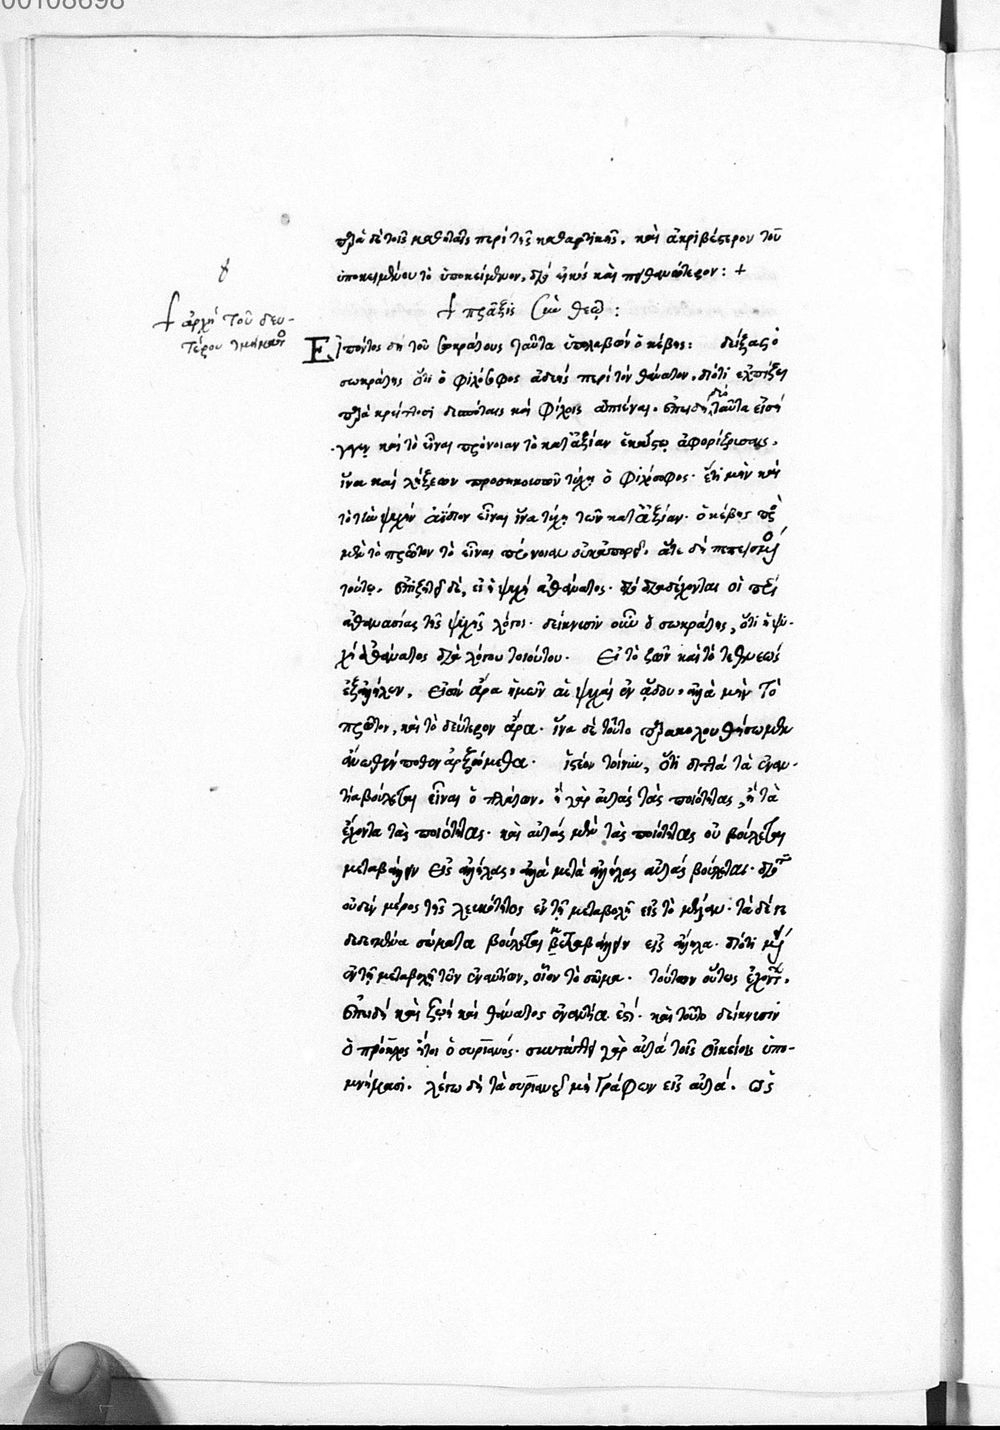 00108698
παρὰ δὲ τοῖς καθόλου περὶ τῆς καθαρτικῆς. καὶ ἀκριβέστερον τοῦ
ὑποκειμένου τὸ ὑποκείμενον, διὸ εἰκὸς καὶ πιθανώτερον : +
+ πρᾶξις σὺν θεῷ :
+ ἀρχὴ τοῦ δευ-
τέρου τμήματος
Εἰπόντος δὴ τοῦ σωκράτους ταῦτα ὑπολαβὼν ὁ κέβης : δείξας ὁ
σωκράτης ὅτι ὁ φιλόσοφος ἀδεὴς περὶ τὸν θάνατον, διότι ἐλπίζει
παρὰ κρείττοσι δεσπόταις καὶ φίλοις ἀπιέναι. ἐπειδὴ διὸ ταῦτα εἰσή-
γαγεν καὶ τὸ εἶναι πρόνοιαν τὸ κατ' ἀξίαν ἑκάστῳ ἀφορίζουσαν,
ἵνα καὶ λήξεων προσηκουσῶν τύχῃ ὁ φιλόσοφος. ἔτι μὴν καὶ
τὸ τὴν ψυχὴν ἀΐδιον εἶναι ἵνα τύχῃ τῶν κατ' ἀξίαν. ὁ κέβης πρὸς
μὲν τὸ πρῶτον τὸ εἶναι πρόνοιαν οὐκ ἀπορεῖ, ἅτε δὴ πεπεισμένος
τούτῳ. ἐπιζητεῖ δὲ, εἰ ἡ ψυχὴ ἀθάνατος. διὸ διαδέχονται οἱ περὶ
ἀθανασίας τῆς ψυχῆς λόγοι. δείκνυσιν οὖν ὁ σωκράτης, ὅτι ἡ ψυ-
χὴ ἀθάνατος διὰ λόγου τοιούτου. Εἰ τὸ ζῶν καὶ τὸ τεθνεὼς
ἐξ ἀλλήλων, εἰσὶν ἄρα ἡμῶν αἱ ψυχαὶ ἐν ᾅδου. ἀλλὰ μὴν τὸ
πρῶτον, καὶ τὸ δεύτερον ἄρα. ἵνα δὲ τούτῳ παρακολουθήσωμεν
ἄνωθέν ποθεν ἀρξώμεθα. ἰστέον τοίνυν, ὅτι διττὰ τὰ ἐναν-
τία βούλεται εἶναι ὁ πλάτων. ἢ γὰρ αὐτὰς τὰς ποιότητας, ἢ τὰ
ἔχοντα τὰς ποιότητας. καὶ αὐτὰς μὲν τὰς ποιότητας οὐ βούλεται
μεταβάλλειν εἰς ἀλλήλας, ἀλλὰ μετὰ ἀλλήλας αὐτὰς βούλεται. διὸ
οὐδὲν μέρος τῆς λευκότητος ἐν τῇ μεταβολῇ εἰς τὸ μέλαν. τὰ δέ γε
δεδεγμένα σώματα βούλεται μεταβάλλειν εἰς ἄλληλα. διότι μένει
ἐν τῇ μεταβολῇ τῶν ἐναντίων, οἷον τὸ σῶμα. τούτων οὕτως ἐχόντων,
ἐπειδὴ καὶ ζωὴ καὶ θάνατος ἐναντία ἐστί. καὶ τοῦτο δείκνυσιν
ὁ πρόκλος ἤτοι ὁ συριανός. συντάττει γὰρ αὐτὰ τοῖς οἰκείοις ὑπο-
μνήμασι. λέγω δὴ τὰ συριανοῦ μὴ γράφων εἰς αὐτά. ὡς